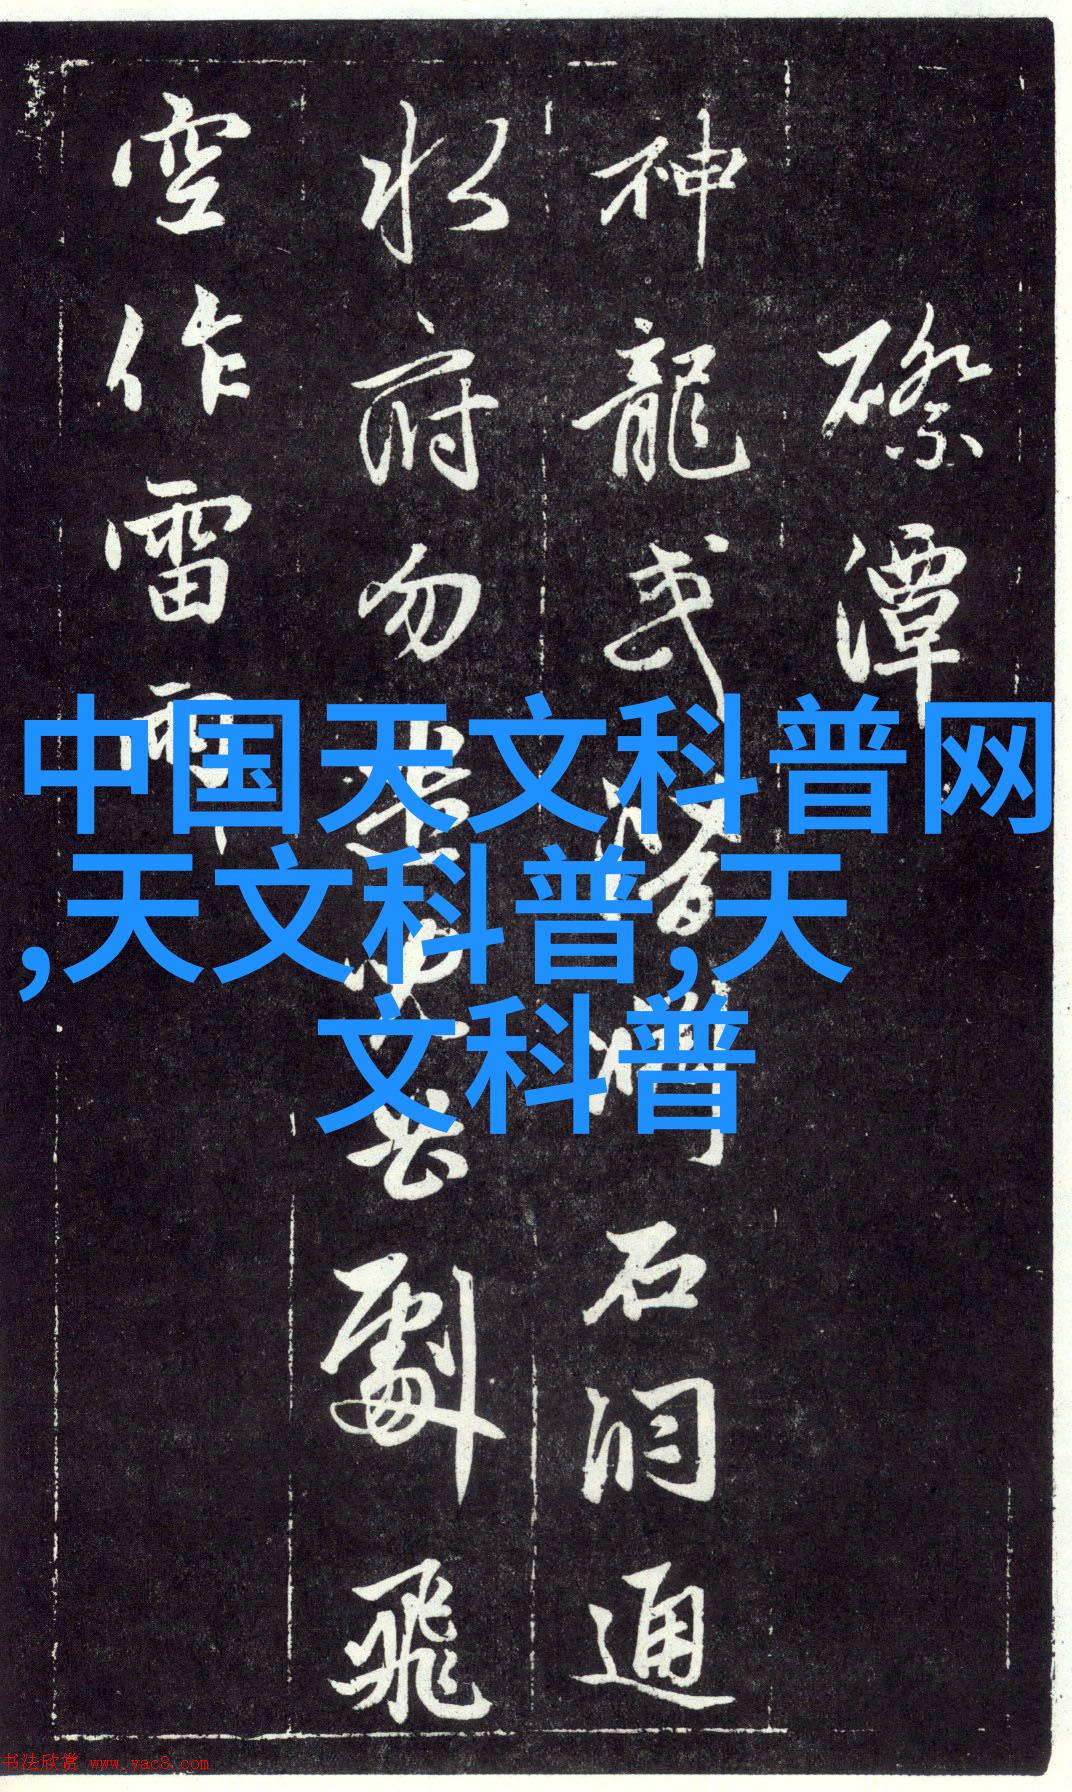 磜潭
神龍或潛溪石洞通
水府勿
劇飛
空作雷雨
中国天文科普网
,天文科普,天
文科普
书法欣赏 www.yac8.com